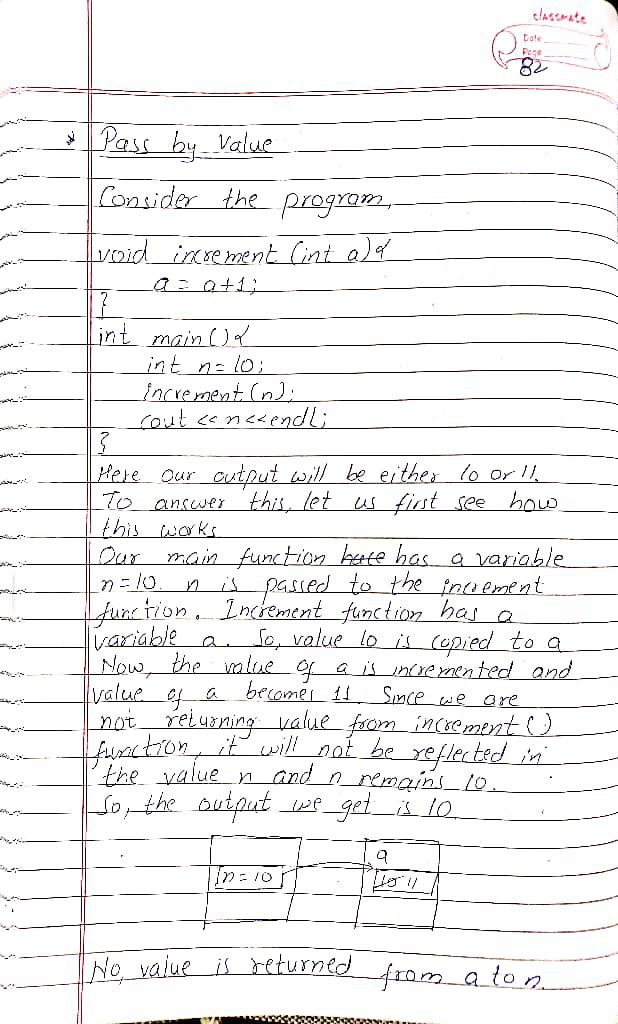 classmate
Date
Page
82
* Pass by Value
Consider the program,
void increment (int a){
a = a+1;
}
int main(){
int n=10;
increment(n);
cout << n<<endl;
}
Here our output will be either 10 or 11.
To answer this, let us first see how
this works
Our main function has a variable
n=10. n is passed to the increment
function. Increment function has a
variable a. So, value 10 is copied to a
Now, the value of a is incremented and
value of a becomes 11. Since we are
not returning value from increment()
function, it will not be reflected in
the value n and n remains 10.
So, the output we get is 10
a
n = 10
10 11
No, value is returned from a to n.